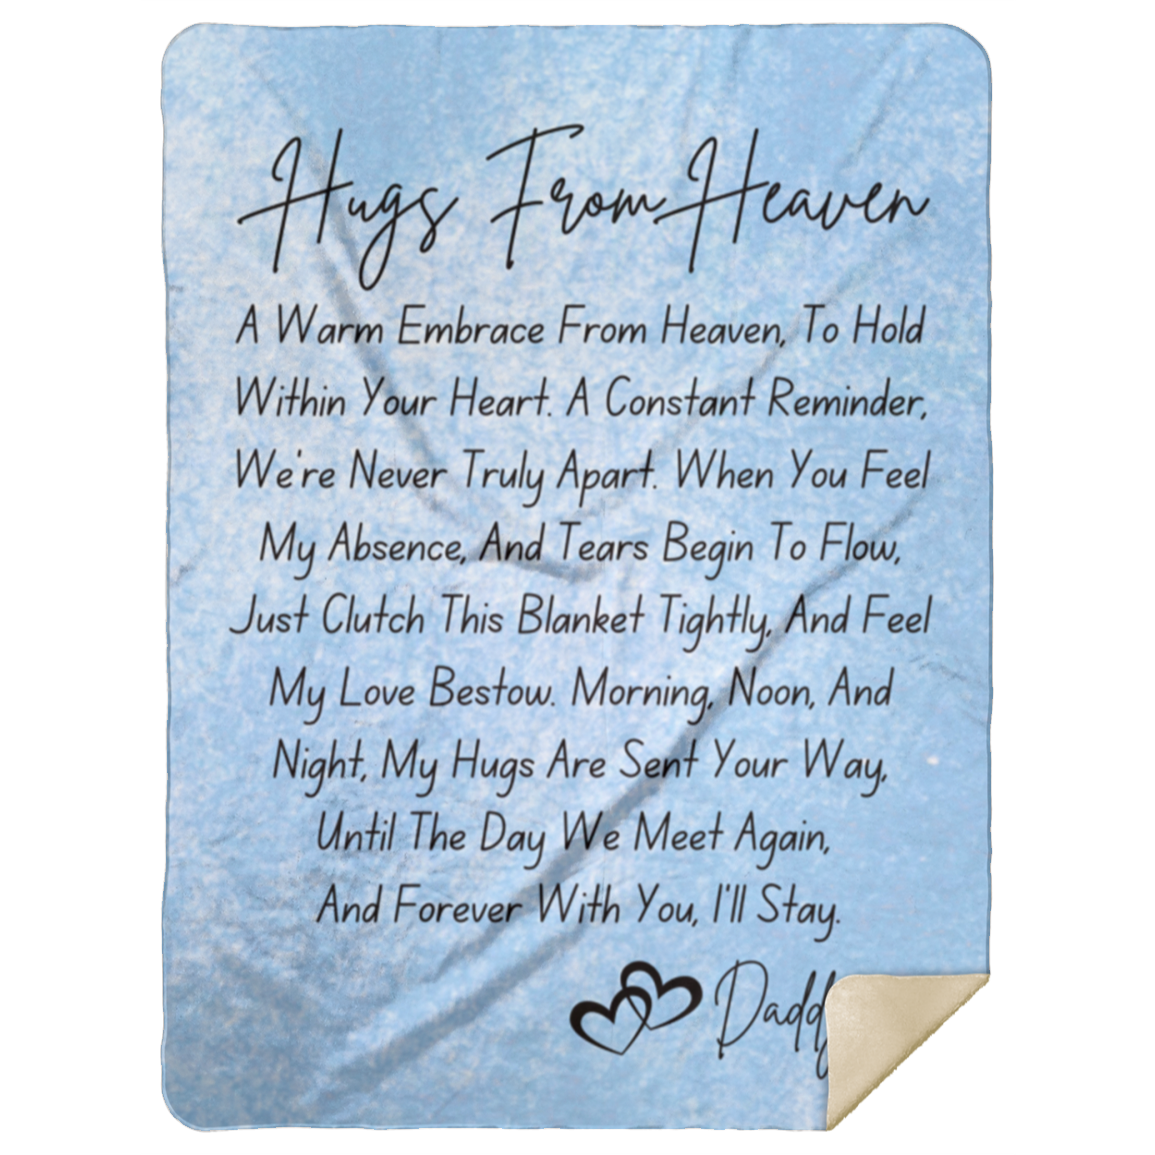 Hugs From Heaven
A Warm Embrace From Heaven, To Hold
Within Your Heart. A Constant Reminder,
We're Never Truly Apart. When You Feel
My Absence, And Tears Begin To Flow,
Just Clutch This Blanket Tightly, And Feel
My Love Bestow. Morning, Noon, And
Night, My Hugs Are Sent Your Way,
Until The Day We Meet Again,
And Forever With You, I'll Stay.
Daddy